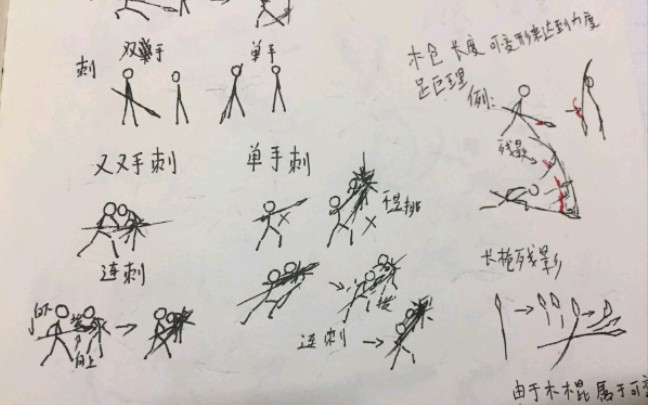 刺
双手
单手
枪长度可变形来达到力度
足巨理
例:
残影
双手刺
单手刺
连刺
挑
向下
向上
连刺
长枪残影
由于木棍属于可变